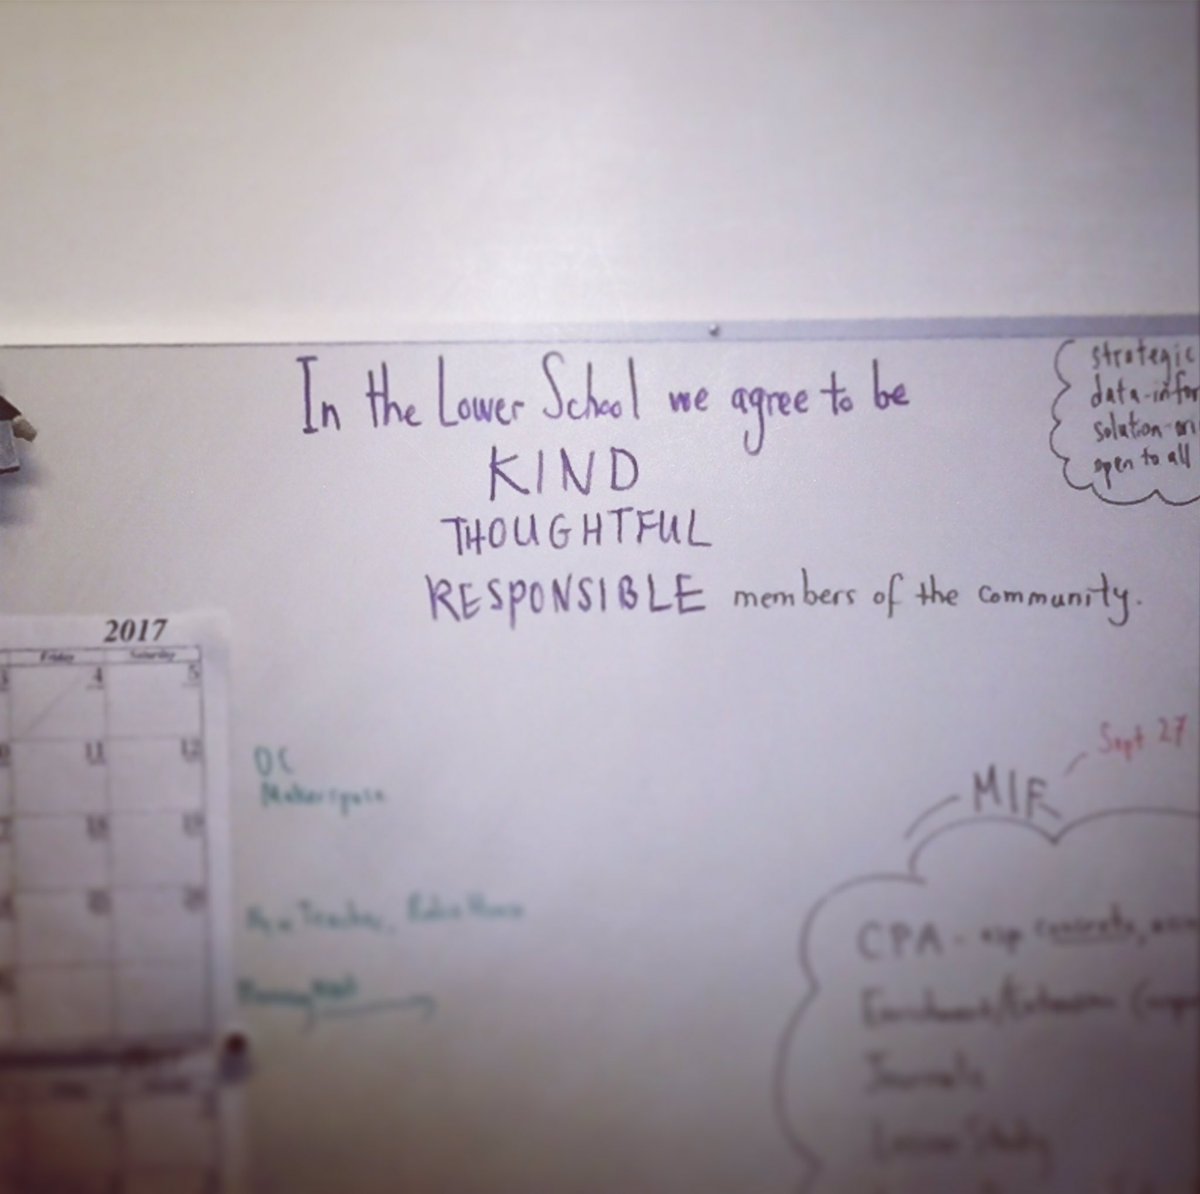 In the Lower School we agree to be
KIND
THOUGHTFUL
RESPONSIBLE members of the community.
strategic
data-infor
solution-ori
open to all
2017
Friday Saturday
4 5
11 12
18 19
DC
Makerspace
MIF
Sept 27
CPA - esp concrete,
Enrichment/Extension
Journals
Lesson Study